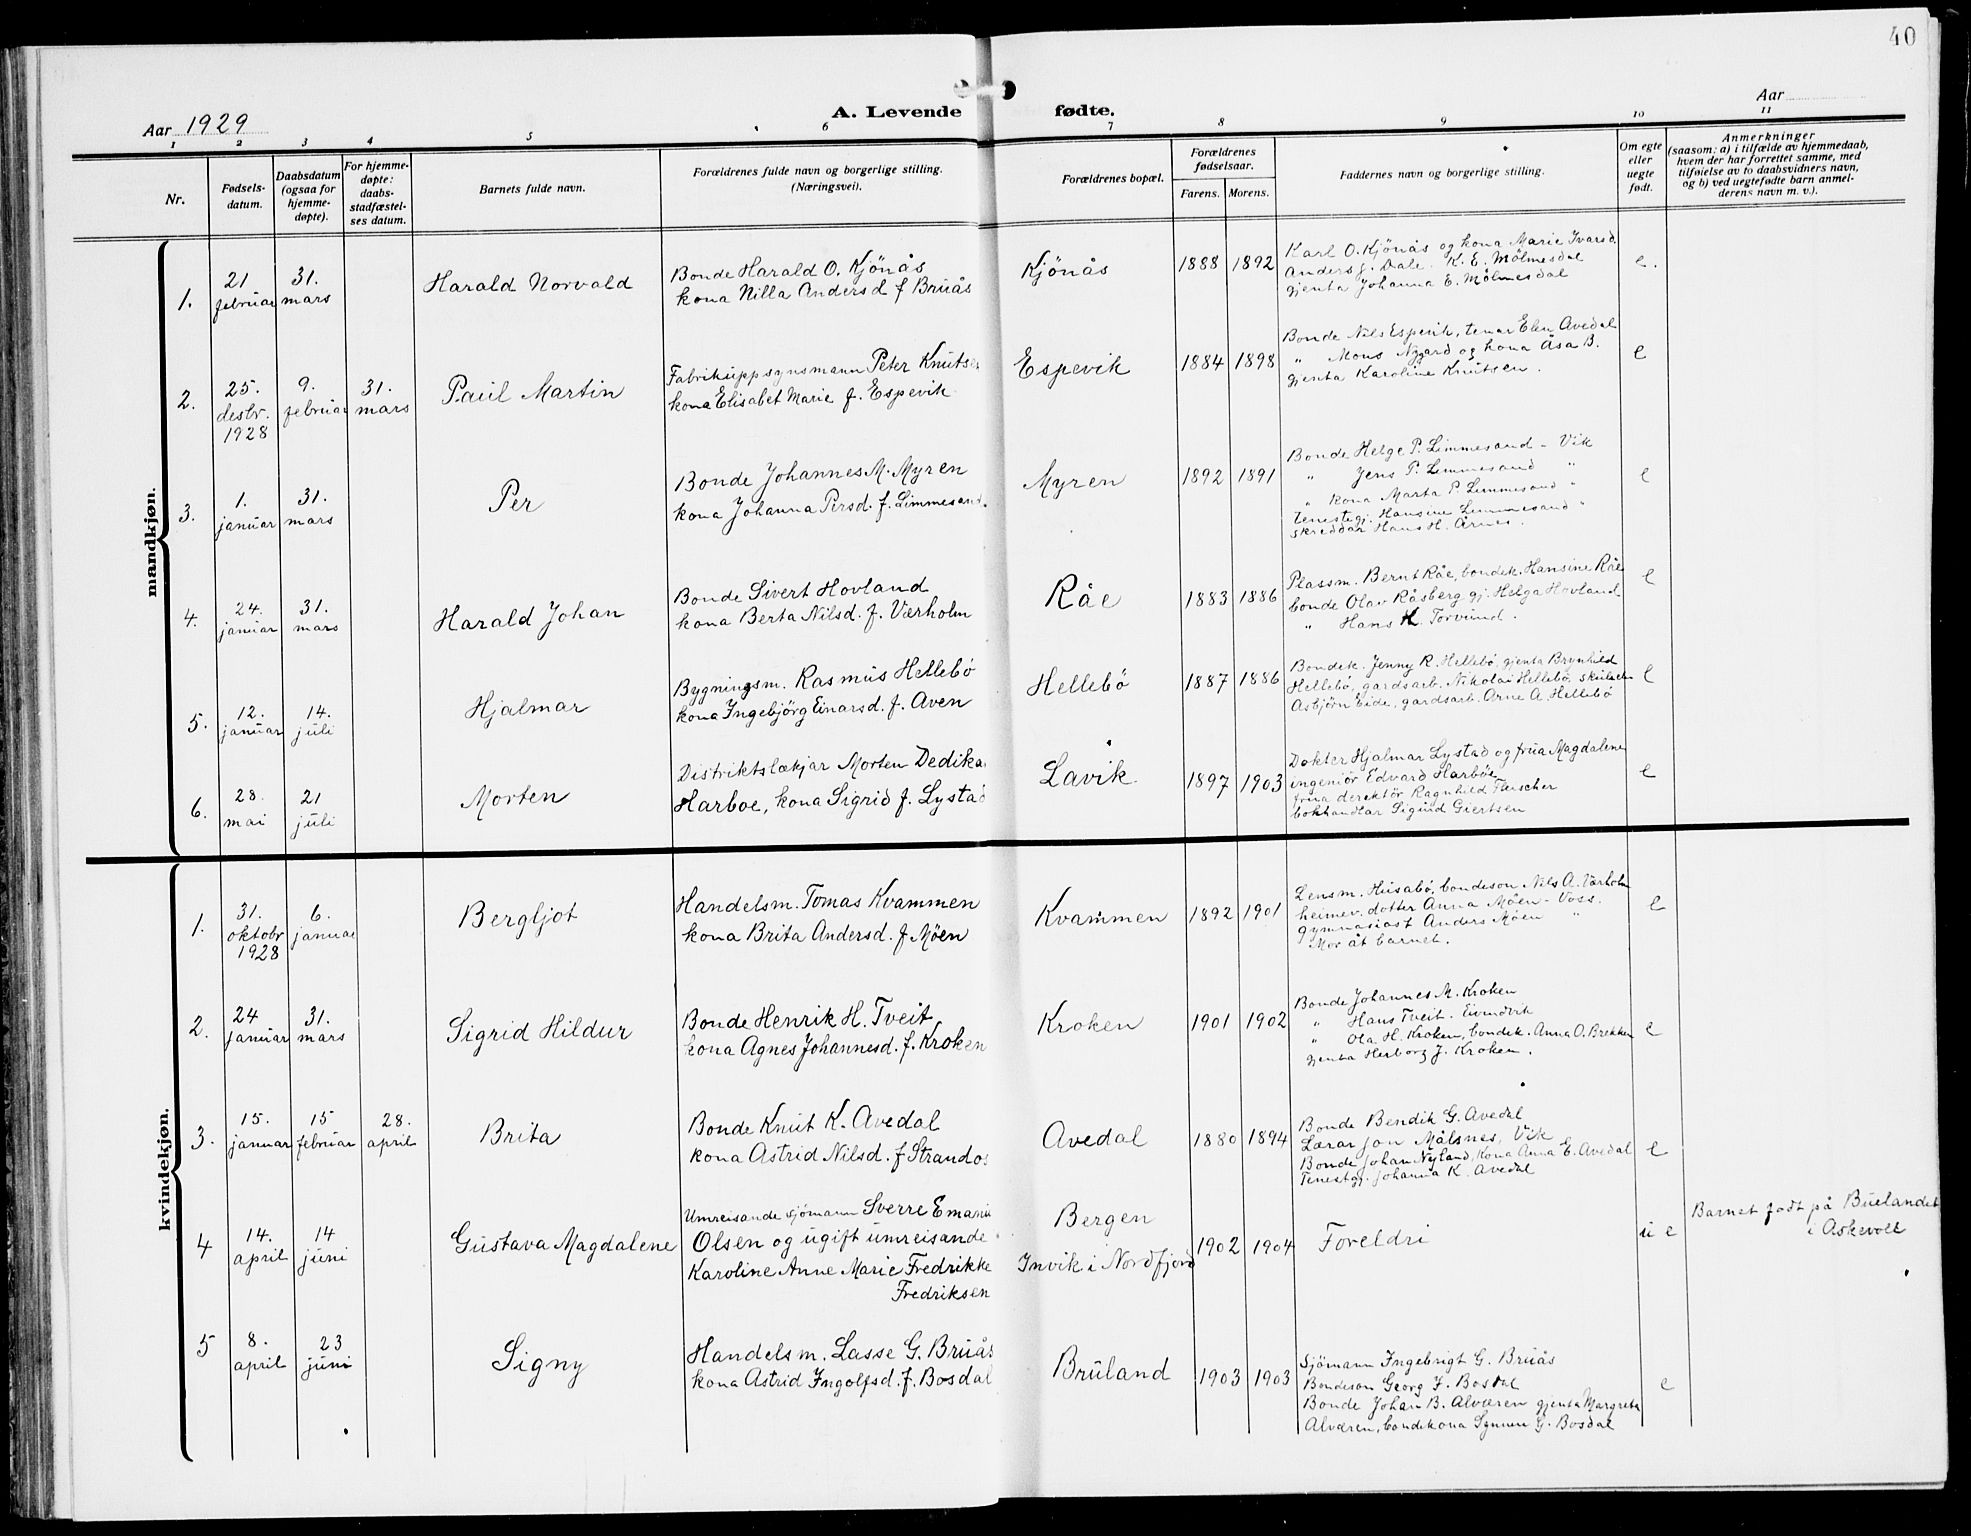 40
A. Levende fødte.
Aar 1929
Aar
1 2 3 4 5 6 7 8 9 10 11
Nr.
Fødsels-
datum.
Daabsdatum
(ogsaa for
hjemme-
døpte).
For hjemme-
døpte:
daabs-
stadfæstel-
ses datum.
Barnets fulde navn.
Forældrenes fulde navn og borgerlige stilling.
(Næringsvei).
Forældrenes bopæl.
Forældrenes
fødselsaar.
Farens. Morens.
Faddernes navn og borgerlige stilling.
Om egte
eller
uegte
født.
Anmerkninger
(saasom: a) i tilfælde av hjemmedaab,
hvem der har forrettet samme, med
tilføielse av to daabsvidners navn,
og b) ved uegtefødte barn anmel-
derens navn m. v.).
mandkjøn.
1. 21 februar 31. mars Harald Norvald
Bonde Harald O. Kjönås
kona Nilla Andersd f Bruås
Kjönås 1888 1892
Karl O. Kjönås og kona Marie Ivarsd.
Anders J. Dale. K. E. Mölmesdal
gjenta Johanna E. Mölmesdal
e.
2. 25. desbr. 1928 9. februar 31. mars Paul Martin
Fabrikuppsynsmann Peter Knutsen
kona Elisabet Marie f. Espevik
Espevik 1884 1898
Bonde Nils Espevik, tenar Elen Avedal
" Mons Nygard og kona Åsa B.
gjenta Karoline Knutsen.
e
3. 1. januar 31. mars Per
Bonde Johannes M. Myren
kona Johanna Persd. f. Limmesand.
Myren 1892 1891
Bonde Helge P. Limmesand - Vik
" Jens P. Limmesand "
" kona Marta P. Limmesand "
tenestegj. Hansine Limmesand "
skreddar Hans H. Årnes.
e
4. 24. januar 31. mars Harald Johan
Bonde Sivert Hovland
kona Berta Nilsd. f. Værholm
Råe 1883 1886
Plassm. Bernt Råe, bondek. Hansine Råe
bonde Olav Råsberg gj. Helga Hovland
" Hans H. Torvund.
e
5. 12. januar 14. juli Hjalmar
Bygningsm. Rasmus Hellebö
kona Ingebjörg Einarsd. f. Aven
Hellebö 1887 1886
Bondek. Jenny R. Hellebö, gjenta Brynhild
Hellebö, gardsarb. Nikolai Hellebö,
Asbjörn Eide, gardsarb. Arne A. Hellebö
e
6. 28. mai 21 juli Morten
Distriktslækjar Morten Dedika
Harboe, kona Sigrid f. Lystad
Lavik 1897 1903
Dokter Hjalmar Lystad og frua Magdalene
ingeniör Edvard Harböe
frua derektör Ragnhild Fleischer
bokhandlar Sigurd Giertsen
e
kvindekjøn.
1. 31. oktobr 1928 6. januar Bergljot
Handelsm. Tomas Kvammen
kona Brita Andersd. f Möen
Kvammen 1892 1901
Lensm. Husabö, bondeson Nils A. Værholm
heimev. dotter Anna Möen - Voss.
gymnasiast Anders Möen "
Mor åt barnet.
e
2. 24 januar 31. mars Sigrid Hildur
Bonde Henrik H. Tveit,
kona Agnes Johannesd. f. Kroken
Kroken 1901 1902
Bonde Johannes M. Kroken
" Hans Tveit. Eivindvik
" Ola H. Kroken, bondek. Anna O. Brekken
gjenta Herborg J. Kroken.
e
3. 15. januar 15 februar 28. april Brita
Bonde Knut K. Avedal
kona Astrid Nilsd. f Strandos
Avedal 1880 1894
Bonde Bendik G. Avedal
Lærar Jon Målsnes, Vik
Bonde Johan Nyland, kona Anna E. Avedal
Tenestgj. Johanna K. Avedal
e
4 14. april 14 juni Gustava Magdalene
Umreisande sjömann Sverre Emanu
Olsen og ugift umreisande
Karoline Anne Marie Fredrikke
Fredriksen
Bergen
Invik i Nordfjord
1902 1904
Foreldri
u e
Barnet födt på Buelandet
i Askevoll
5 8. april 23 juni Signy
Handelsm. Lasse G. Bruås
kona Astrid Ingolfsd. f. Bosdal
Bruland 1903 1903
Sjömann Ingebrigt G. Bruås
Bondeson Georg I. Bosdal
Bonde Johan B. Alværen gjenta Margreta
Alværen, bondekona Synnev G. Bosdal
e